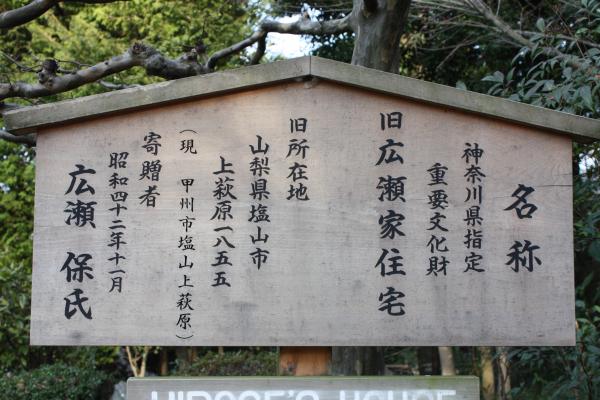 名称
神奈川県指定
重要文化財
旧広瀬家住宅
旧所在地
山梨県塩山市
上萩原一八五五
(現 甲州市塩山上萩原)
寄贈者
昭和四十二年十一月
広瀬 保氏
HIROSE'S HOUSE